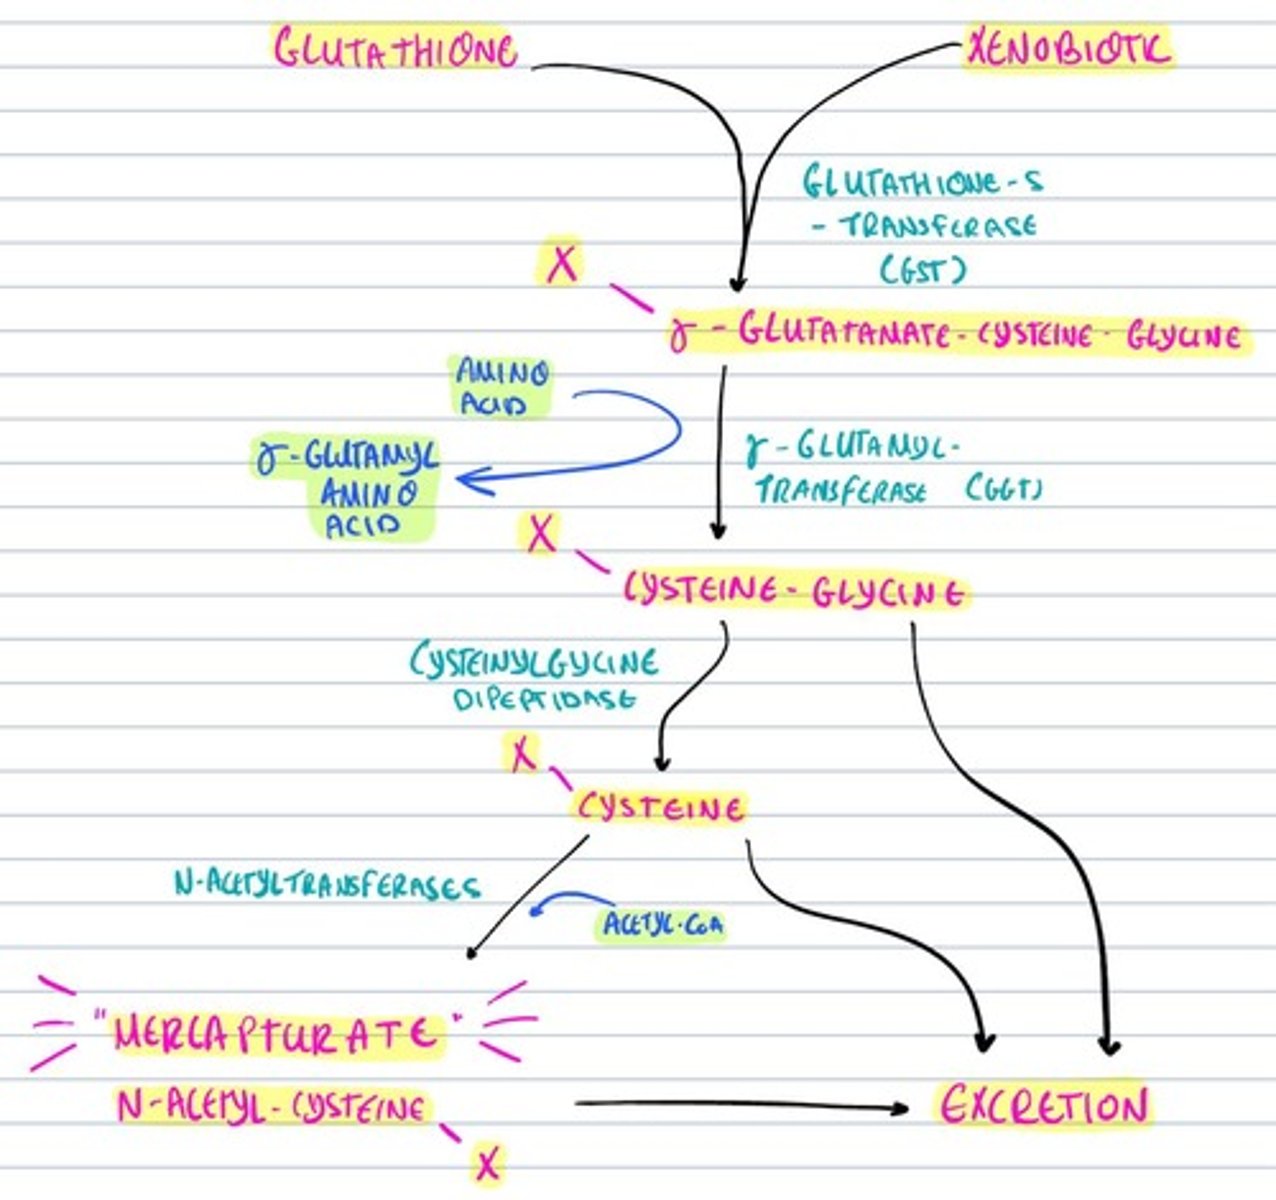 GLUTATHIONE
XENOBIOTIC
GLUTATHIONE-S
- TRANSFERASE
(GST)
X
γ - GLUTATAMATE - CYSTEINE - GLYCINE
AMINO
ACID
γ-GLUTAMYL
AMINO
ACID
γ - GLUTAMYL-
TRANSFERASE (GGT)
X
CYSTEINE - GLYCINE
CYSTEINYLGYCINE
DIPEPTIDASE
X
CYSTEINE
N-ACETYLTRANSFERASES
ACETYL-CoA
"MERCAPTURATE"
N-ACETYL-CYSTEINE
X
EXCRETION